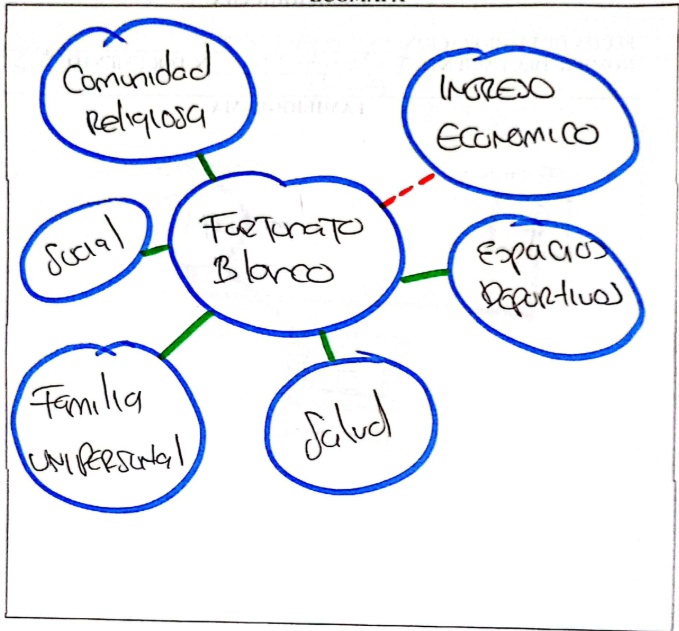 Comunidad
Religiosa
INGRESO
ECONOMICO
Fortunato
Blanco
Social
Espacios
Deportivos
Familia
UNIPERSONAL
Salud